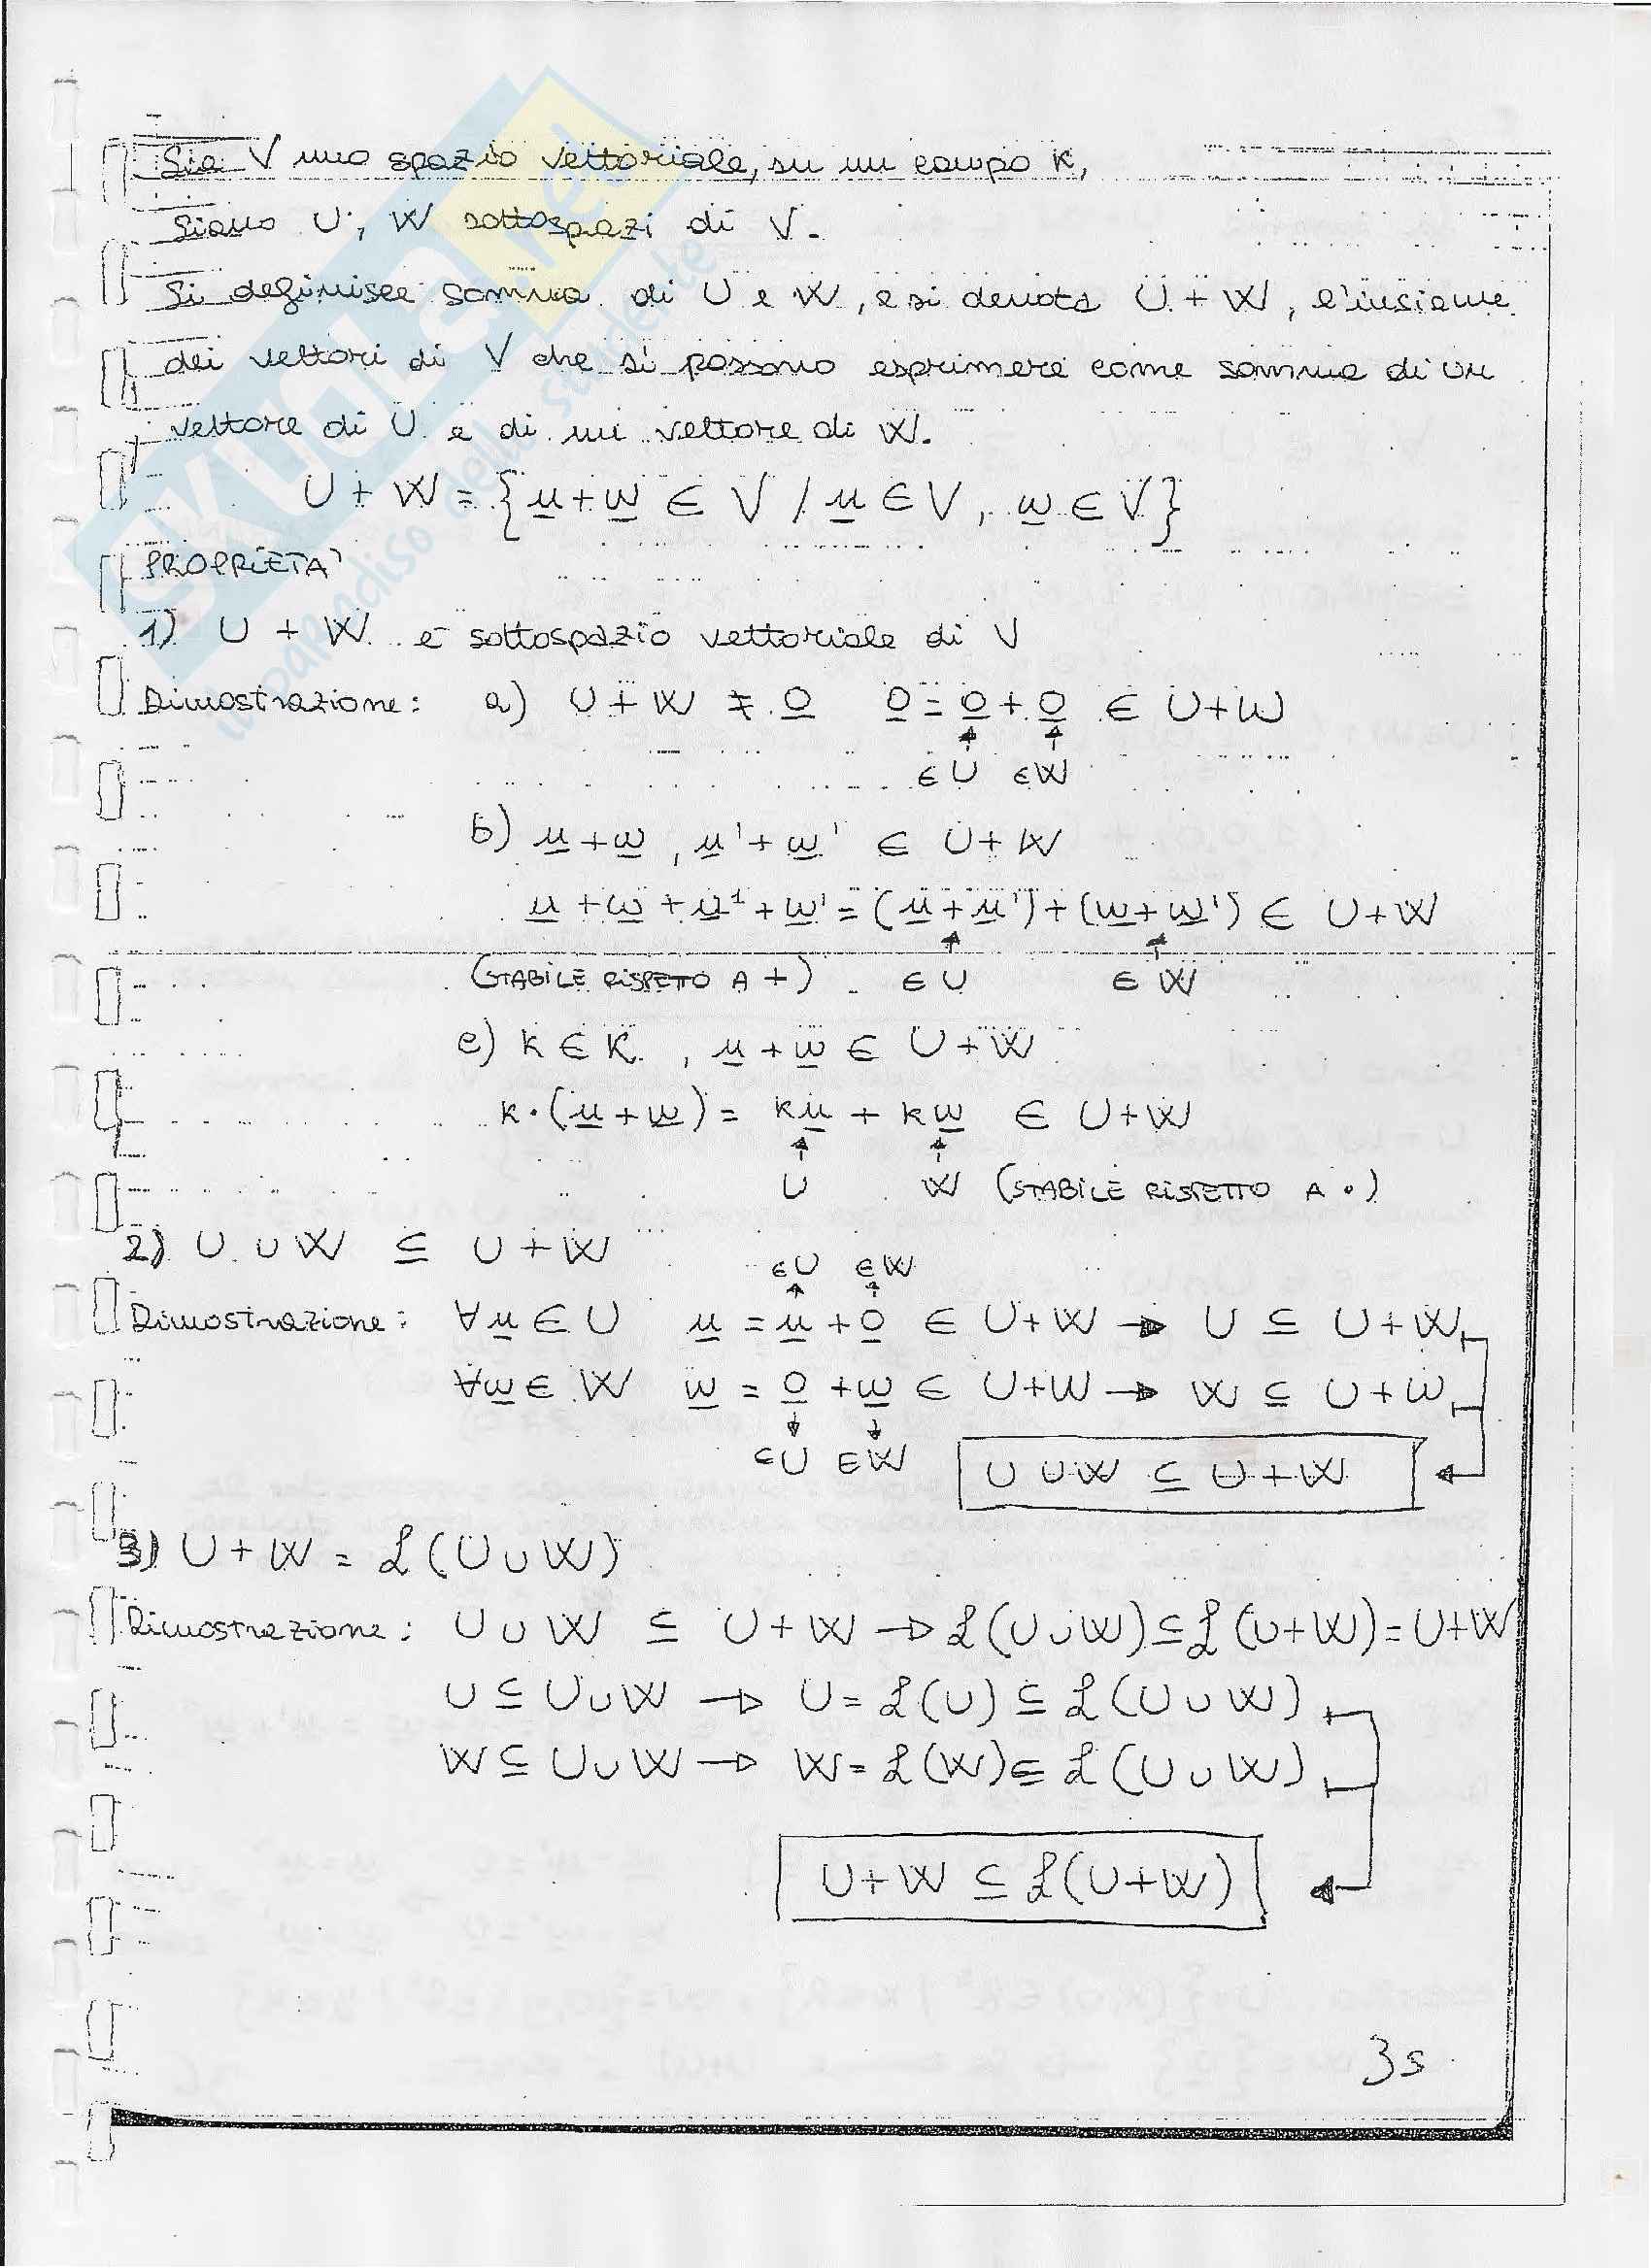 Sia V uno spazio vettoriale, su un campo K,
Siano U, W sottospazi di V.
Si definisce somma di U e W, e si denota U + W, l'insieme
dei vettori di V che si possono esprimere come somma di un
vettore di U e di un vettore di W.
U + W = {u + w ∈ V / u ∈ V, w ∈ V}
PROPRIETA'
1) U + W è sottospazio vettoriale di V
Dimostrazione: a) U + W ≠ 0 0 = 0 + 0 ∈ U+W
∈U ∈W
b) u + w, u' + w' ∈ U + W
u + w + u' + w' = (u + u') + (w + w') ∈ U+W
(STABILE RISPETO A +) ∈ U ∈ W
c) k ∈ K, u + w ∈ U + W
k·(u + w) = ku + kw ∈ U+W
U W (STABILE RISPETTO A ·)
2) U ∪ W ⊆ U + W
∈U ∈W
Dimostrazione: ∀u ∈ U u = u + 0 ∈ U+W → U ⊆ U+W
∀w ∈ W w = 0 + w ∈ U+W → W ⊆ U+W
∈U ∈W U ∪ W ⊆ U+W
3) U + W = L(U ∪ W)
Dimostrazione: U ∪ W ⊆ U + W → L(U∪W) ⊆ L(U+W) = U+W
U ⊆ U∪W → U = L(U) ⊆ L(U ∪ W)
W ⊆ U∪W → W = L(W) ⊆ L(U ∪ W)
U+W ⊆ L(U+W)
3s